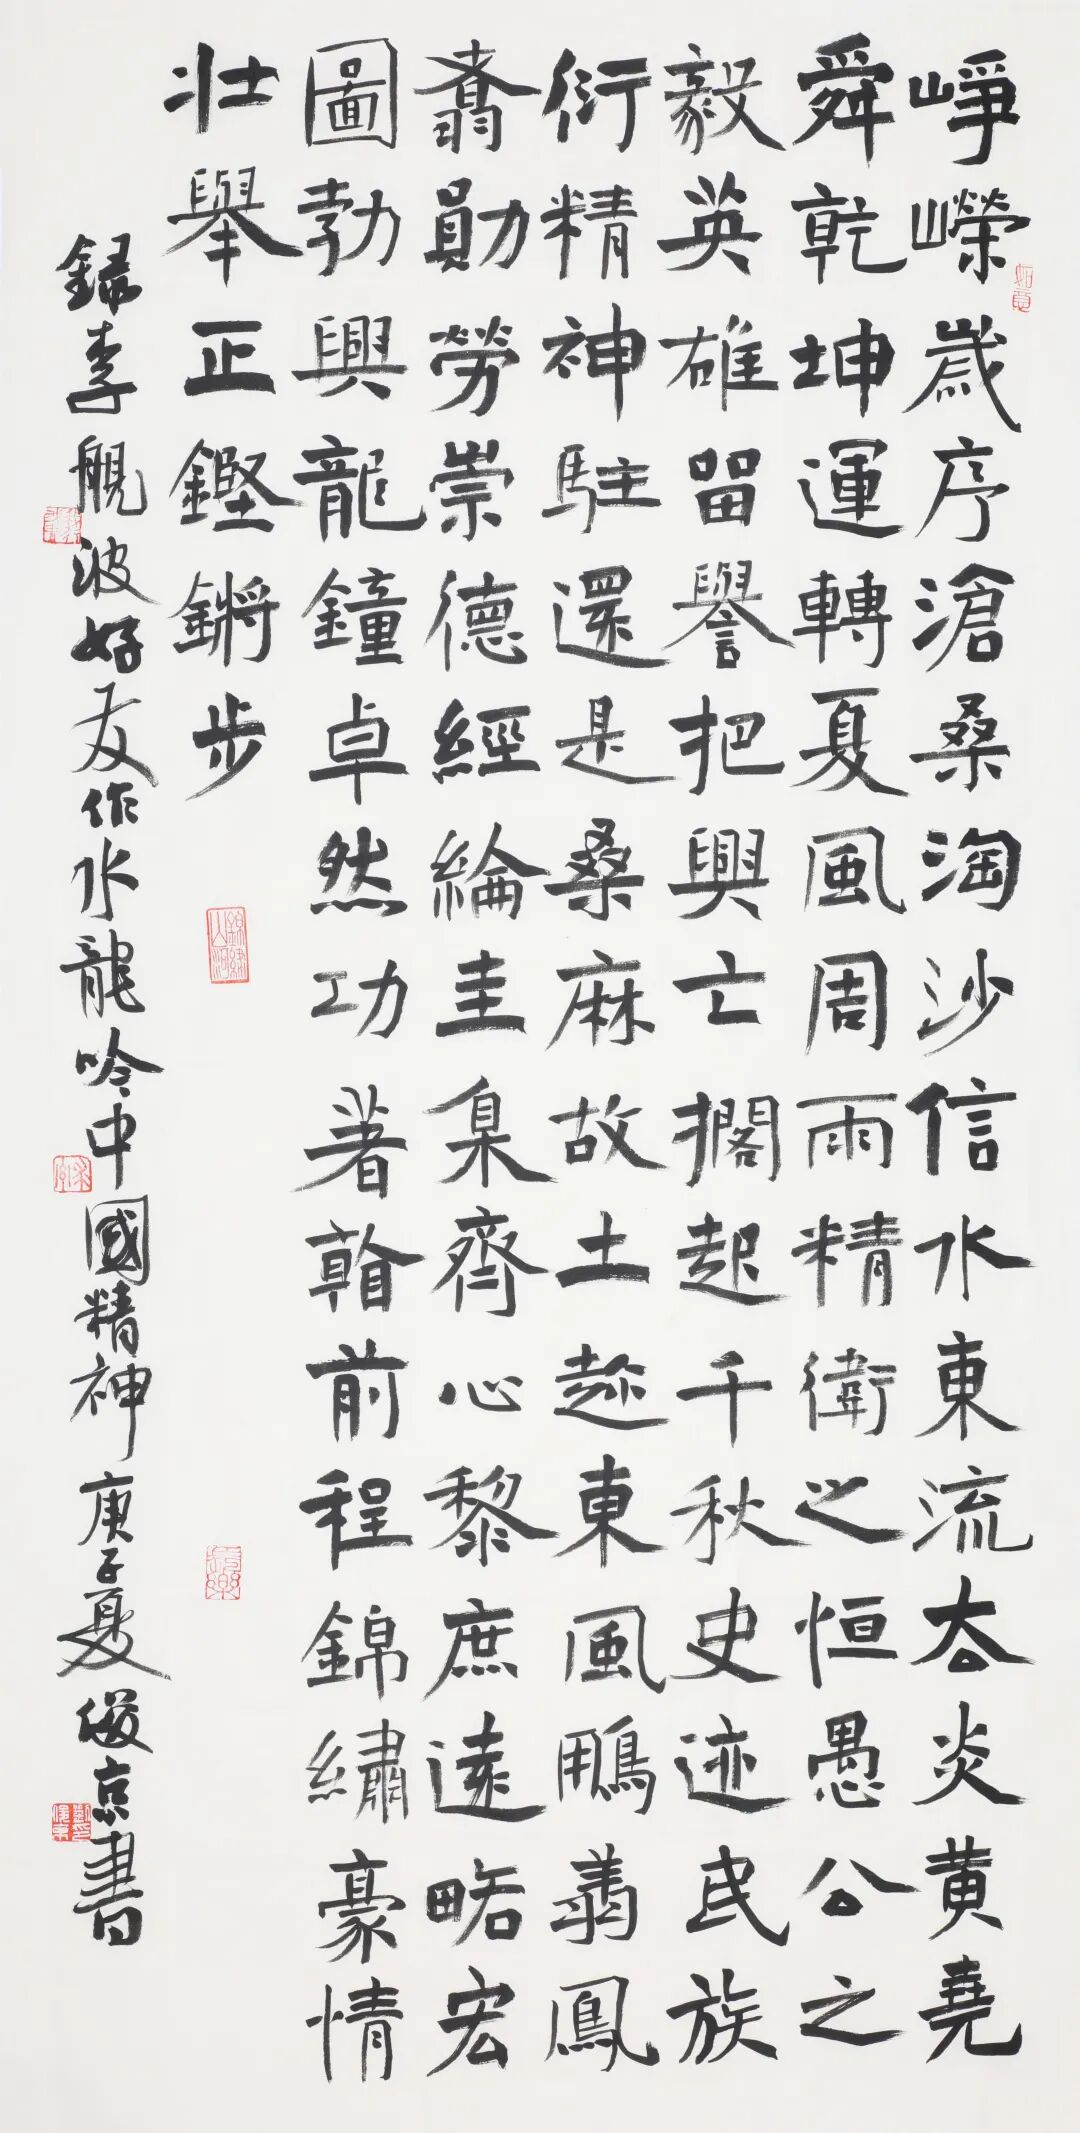 崢嶸歲序滄桑淘沙信水東流去炎黄堯
舜乾坤運轉夏風周雨精衛之恒愚公之
毅英雄留譽把興亡擱起千秋史迹民族
衍精神駐還是桑麻故土趁東風鵬翥鳳
翥勛勞崇德經綸圭臬齊心黎庶遠略宏
圖勃興龍鐘卓然功著翰前程錦繡豪情
壯舉正鏗鏘步
錄李舰波好友作水龍吟中國精神庚子夏俊京書
如意
錦繡山河
長樂